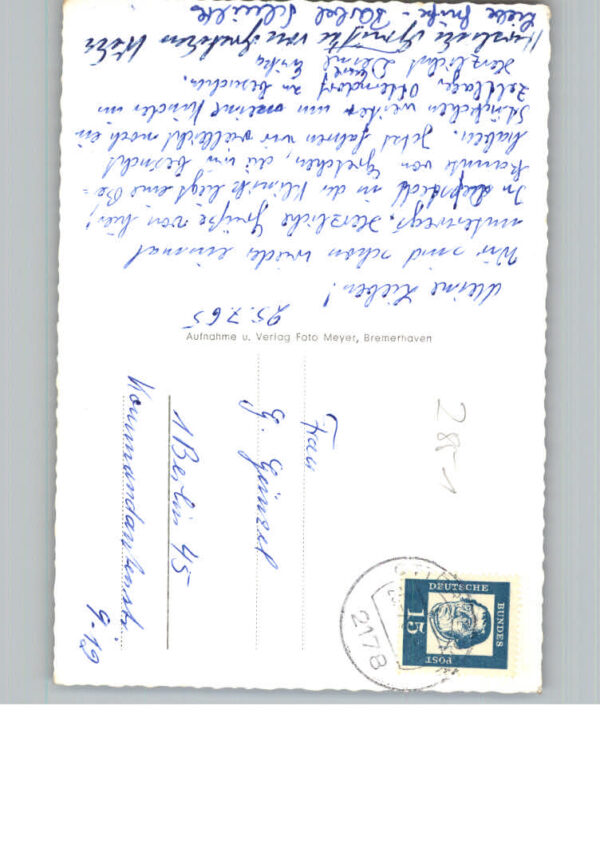 25.7.65
Meine Lieben!
Wir sind schon wieder einmal
unterwegs. Herzliche Grüße von hier!
In der Klinik liegt eine Be-
kannte von Gretchen, die wir besucht
haben. Jetzt fahren wir vielleicht noch ein
Stückchen weiter um meine Kinder im
Zeltlager Otterndorf zu besuchen.
Herzlichst Deine Erika
Herzliche Grüße von Gretchen
Liebe Grüße - Bärbel
Aufnahme u. Verlag Foto Meyer, Bremerhaven
Frau
G. Günzel
1 Berlin 45
Kommandantenstr.
9-12
285-1
DEUTSCHE
BUNDES
POST
15
2178